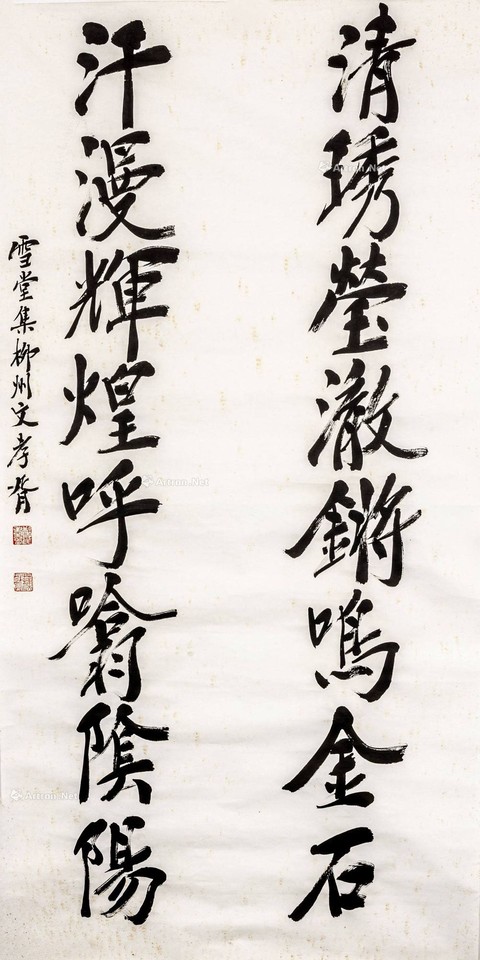 清琇瑩澈鏘鳴金石
汗漫輝煌呼噏陰陽
雪堂集柳州文孝胥
Artron.Net
Artron.Net
Artron.Net